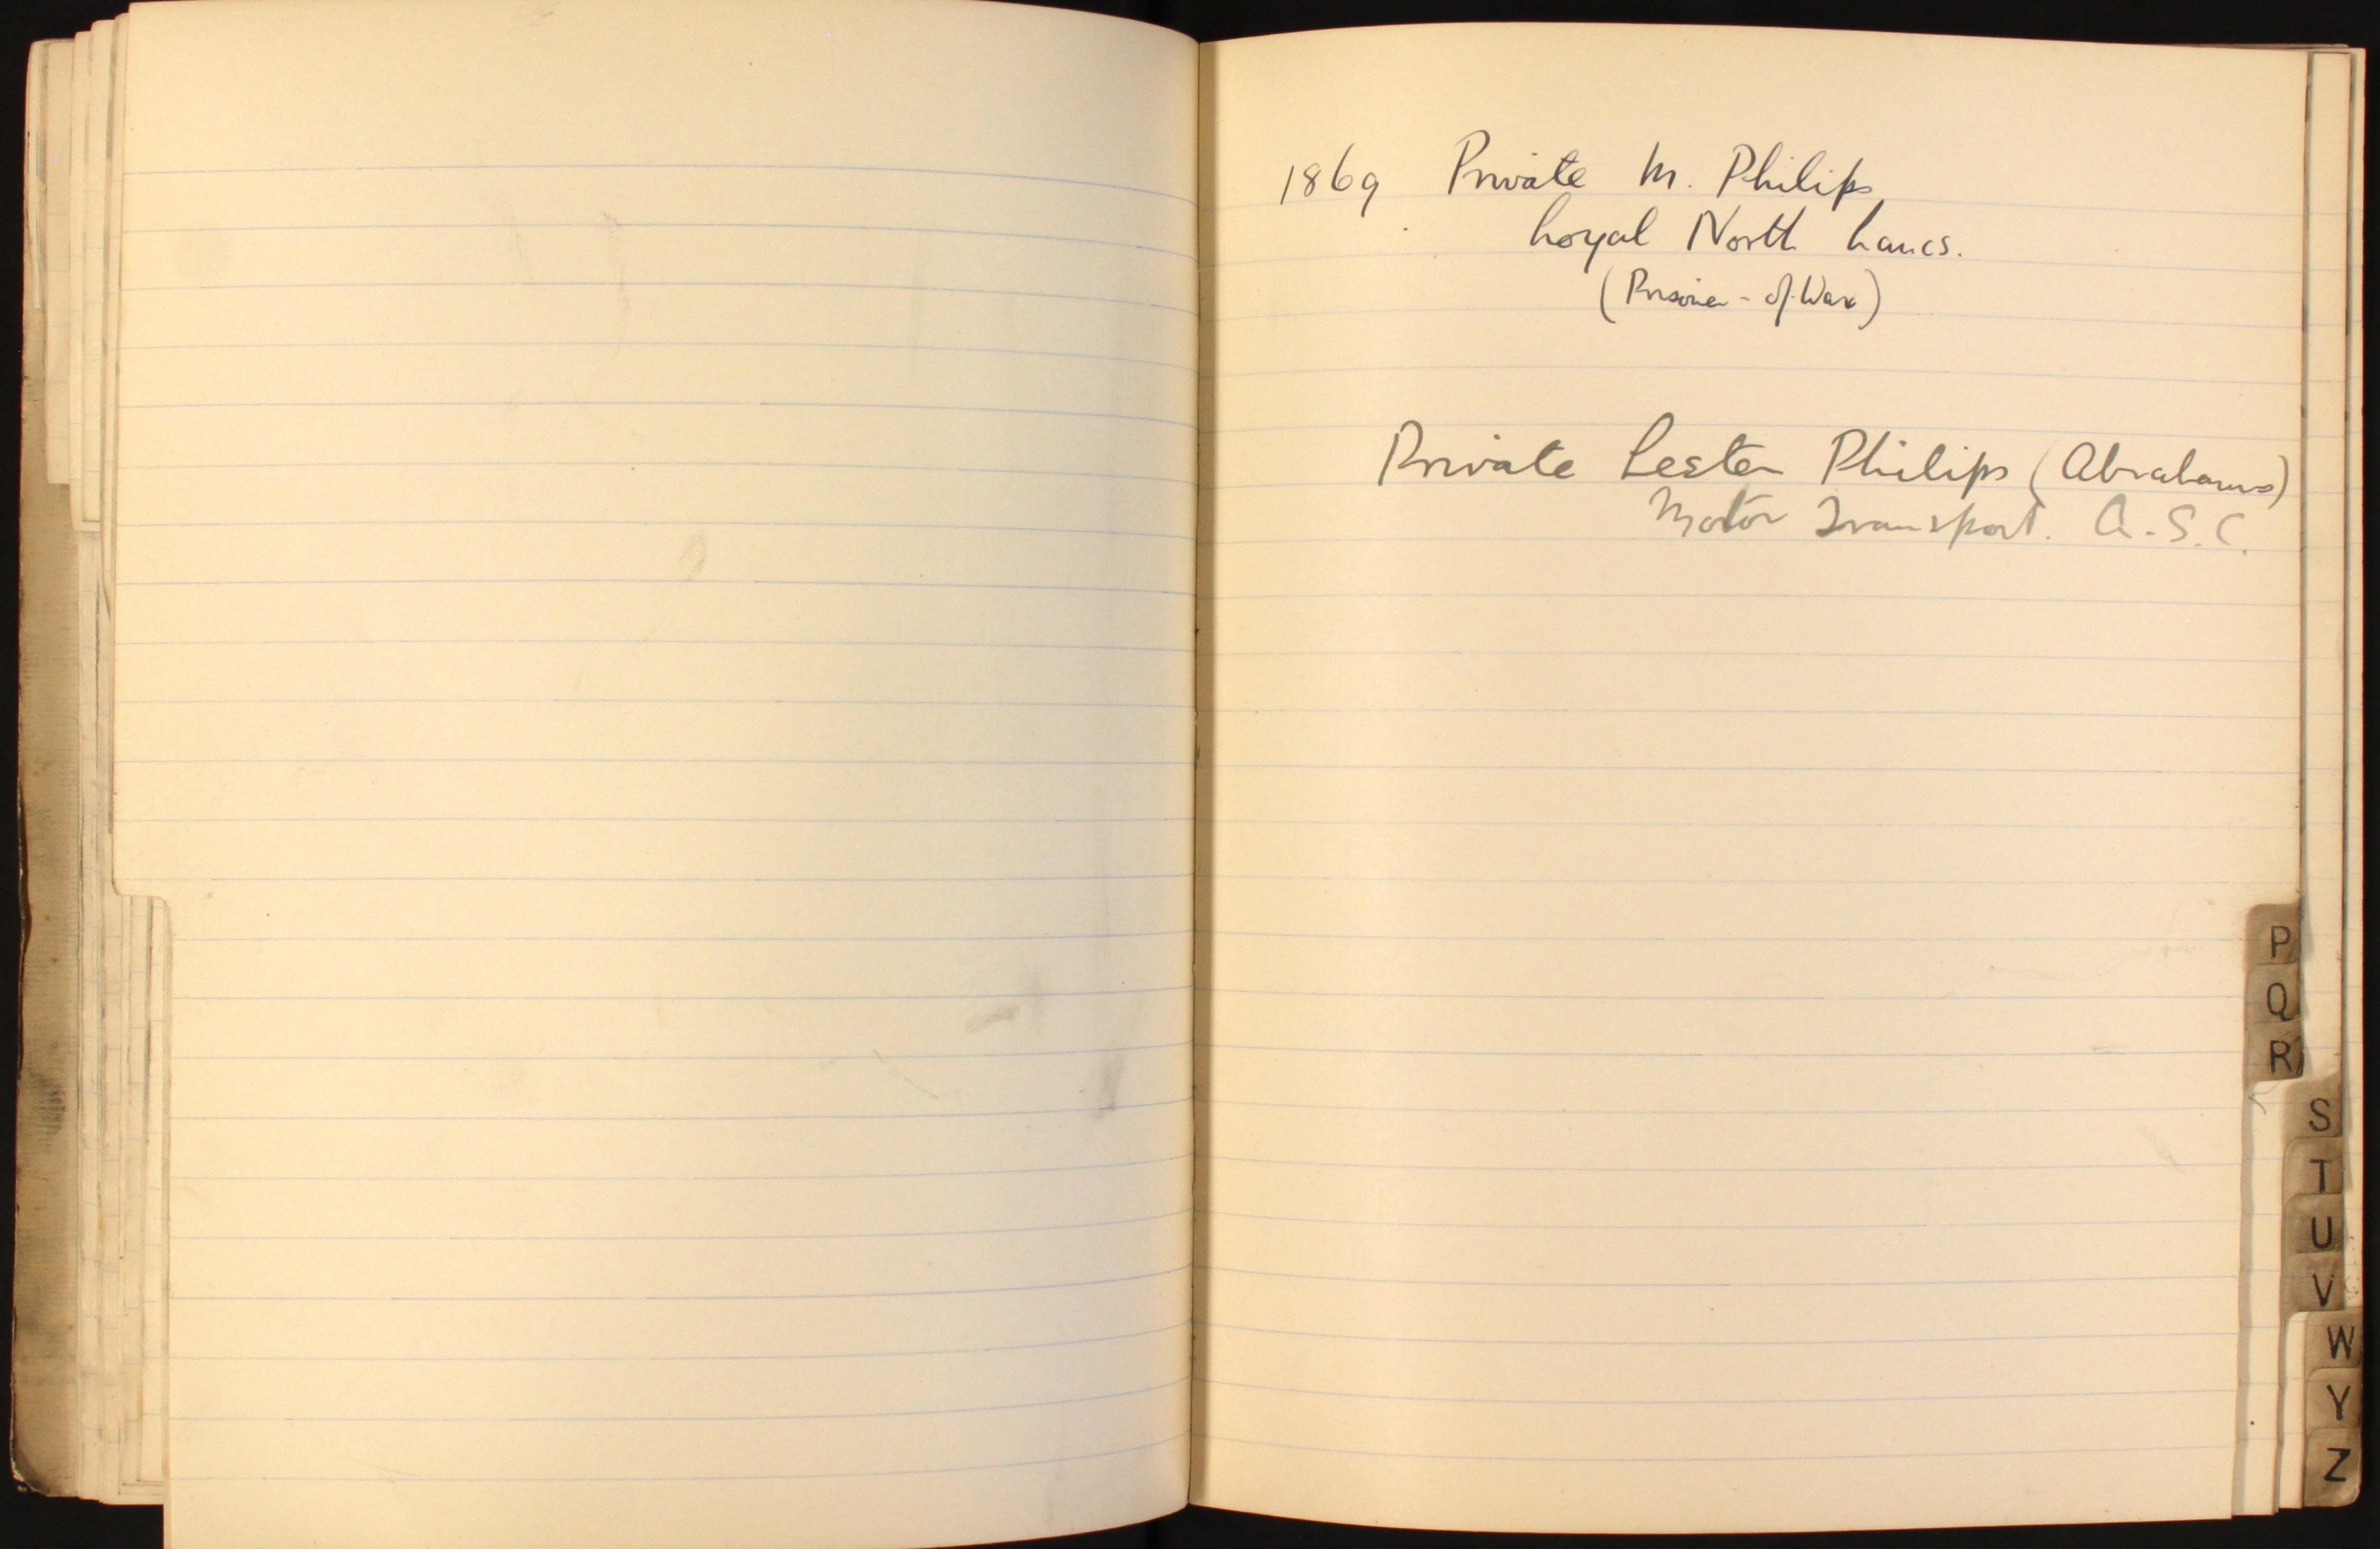 1869 Private M. Philips
Loyal North Lancs.
(Prisoner-of-War)
Private Lester Philips (Abrahams)
Motor Transport. A.S.C.
P
Q
R
S
T
U
V
W
Y
Z